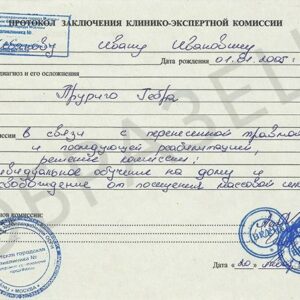 ПРОТОКОЛ ЗАКЛЮЧЕНИЯ КЛИНИКО-ЭКСПЕРТНОЙ КОМИССИИ
Ивану Ивановичу
Дата рождения 01.01.2005 г
диагноз и его осложнения
комиссии в связи с перенесенной травмой
и последующей реабилитацией,
решение комиссии:
индивидуальное обучение на дому и
освобождение от посещения массовой
члены комиссии:
Дата « 20 »
ОБРАЗЕЦ